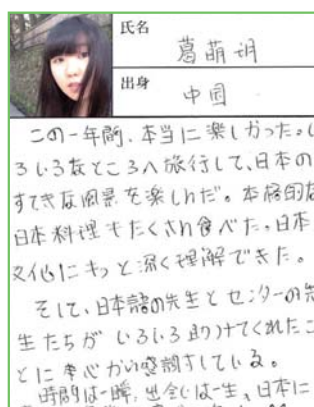 氏名
葛萌玥
出身
中国
この一年間、本当に楽しかった。い
ろいろなところへ旅行して、日本の
すてきな風景を楽しんだ。本格的な
日本料理もたくさん食べた。日本
文化にもっと深く理解できた。
そして、日本語の先生とセンターの先
生たちがいろいろ助けてくれたこ
とに本心から感謝している。
時間は一瞬、出会いは一生、日本に